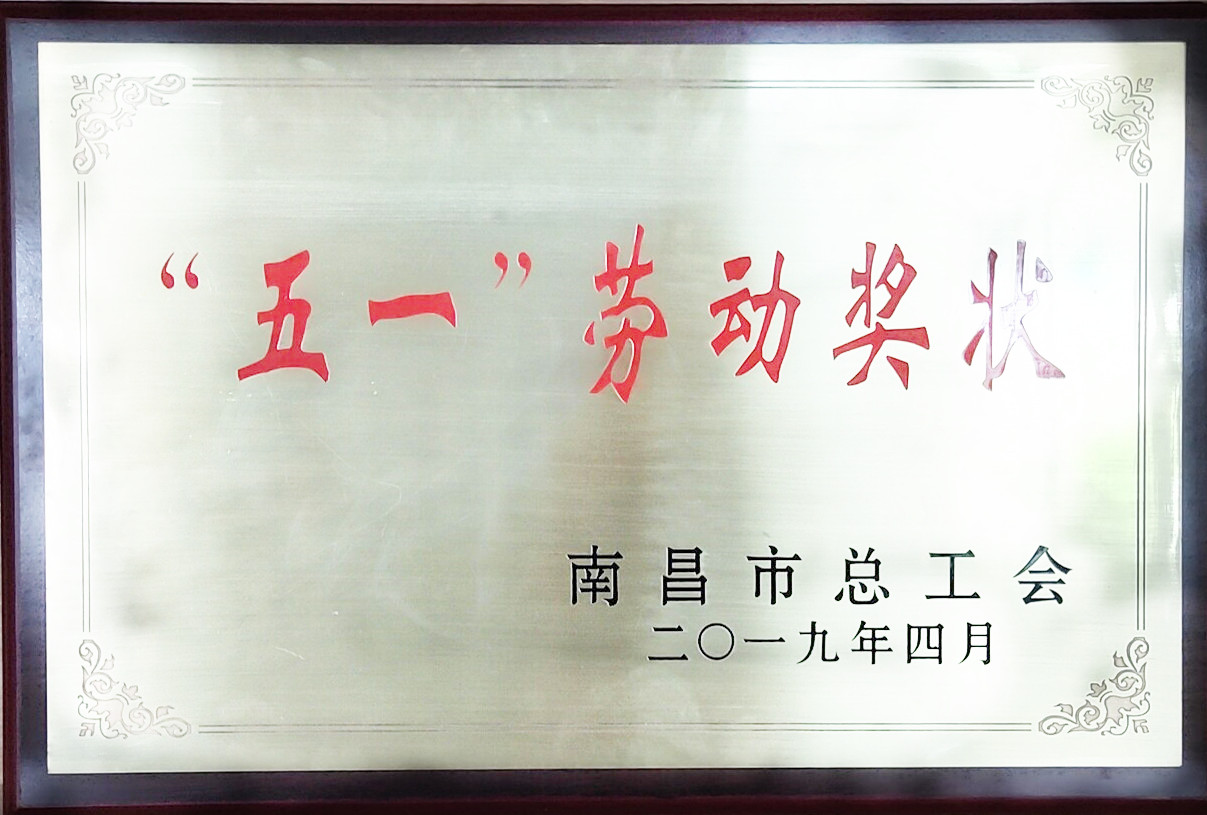 “五一”劳动奖状
南昌市总工会
二〇一九年四月